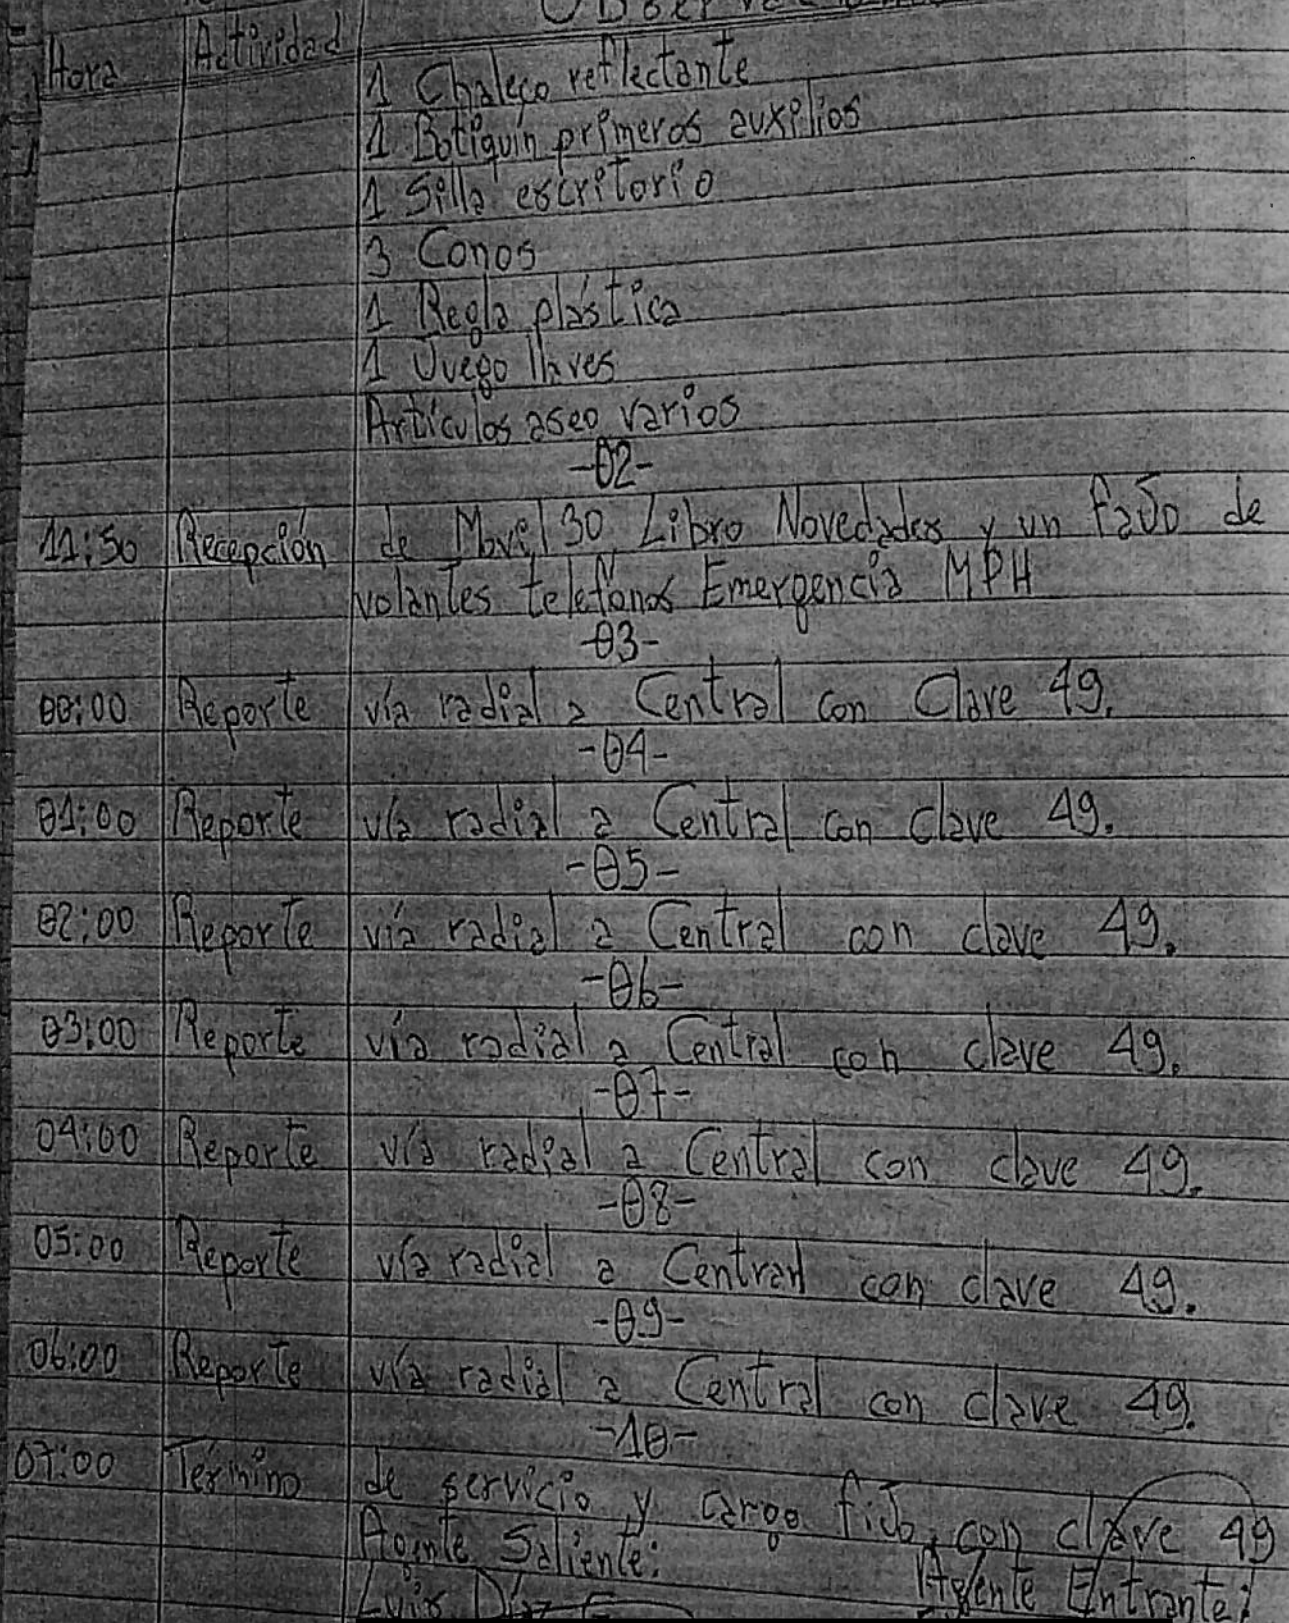 Observaciones
Hora Actividad
1 Chaleco reflectante
1 Botiquín primeros auxilios
1 Silla escritorio
3 Conos
1 Regla plástica
1 Juego llaves
Artículos aseo varios
-02-
11:50 Recepción de Movil 30, Libro Novedades y un fajo de
volantes telefonos Emergencia MPH
-03-
00:00 Reporte vía radial a Central con Clave 49.
-04-
01:00 Reporte vía radial a Central con clave 49.
-05-
02:00 Reporte vía radial a Central con clave 49.
-06-
03:00 Reporte vía radial a Central con clave 49.
-07-
04:00 Reporte vía radial a Central con clave 49.
-08-
05:00 Reporte vía radial a Central con clave 49.
-09-
06:00 Reporte vía radial a Central con clave 49.
-10-
07:00 Término de servicio y cargo fijo, con clave 49
Agente Saliente: Agente Entrante:
Luis Díaz